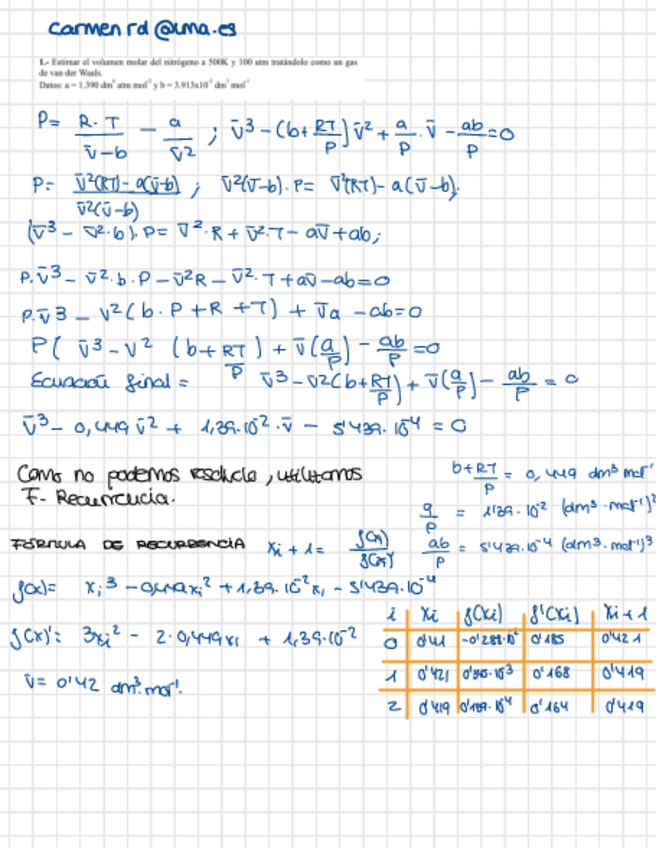 carmen rd @uma.es
1.- Estimar el volumen molar del nitrógeno a 500K y 100 atm tratándolo como un gas
de van der Waals.
Datos: a = 1.390 dm⁶ atm mol⁻² y b = 3.913x10⁻² dm³ mol⁻¹
P= R·T / v̄-b - a / v̄² ; v̄³ - (b + RT/P) v̄² + a/P · v̄ - ab/P = 0
P= v̄²(RT) - a(v̄-b) / v̄²(v̄-b) ; v̄²(v̄-b)·P = v̄²(RT) - a(v̄-b);
(v̄³ - v̄²·b)·P = v̄²·R + v̄²·T - av̄ + ab;
P·v̄³ - v̄²·b·P - v̄²R - v̄²·T + av̄ - ab = 0
P·v̄³ - v²(b·P + R + T) + v̄a - ab = 0
P( v̄³ - v² (b + RT/P) + v̄(a/P) - ab/P = 0
Ecuación final = v̄³ - v̄2(b + RT/P) + v̄(a/P) - ab/P = 0
v̄³ - 0,449 v̄² + 1,39·10⁻²·v̄ - 5'439·10⁻⁴ = 0
Como no podemos resolverlo, utilizamos
F- Recurrencia.
b + RT/P = 0,449 dm³ mol⁻¹
a/P = 1'39·10⁻² (dm³·mol⁻¹)²
ab/P = 5'439·10⁻⁴ (dm³·mol⁻¹)³
FÓRMULA DE RECURRENCIA xi + 1 = f(x) / f(x)'
f(x)= xi³ - 0,449xi² + 1,39·10⁻²xi - 5'439·10⁻⁴
f(x)': 3xi² - 2·0,449xi + 1,39·10⁻²
v̄ = 0'42 dm³·mol⁻¹.
i xi f(xi) f'(xi) xi + 1
0 0'41 0'185 0'421
1 0'421 0'168 0'419
2 0'419 0'164 0'419